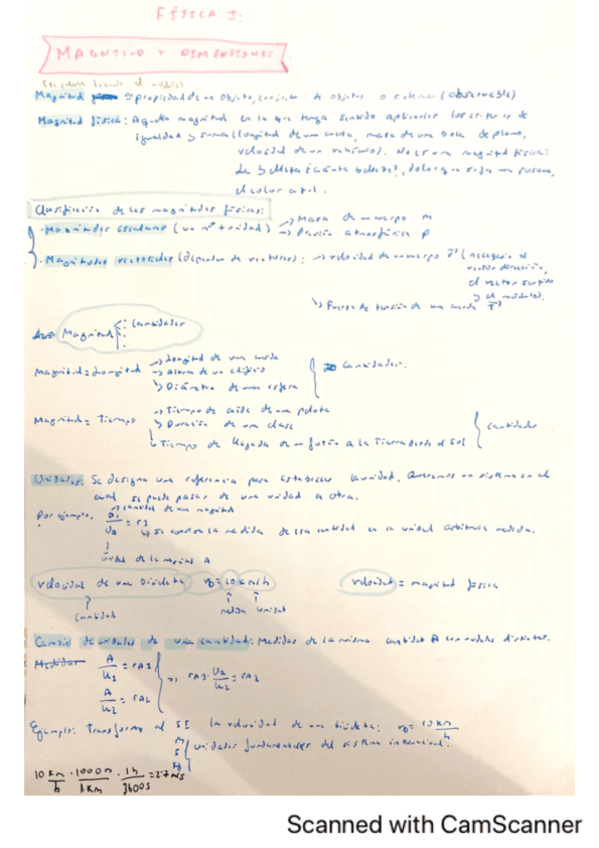 FÍSICA I:
MAGNITUD Y DIMENSIONES
Magnitud = propiedad de un objeto, conjunto de objetos o sistema (observable)
Magnitud física: Aquella magnitud en la que tenga sentido aplicar los criterios de
igualdad y suma (longitud de una cuerda, masa de una bola de plomo,
velocidad de un vehículo). No es una magnitud física:
la belleza ¿cuánta belleza?, dolor que siga una persona,
el color azul.
Clasificación de las magnitudes físicas:
· Magnitudes escalares (un nº + unidad) → Masa de un cuerpo m
→ Presión atmosférica P
· Magnitudes vectoriales (dependen de vectores): → velocidad de un cuerpo v (necesito el
vector dirección,
el vector sentido
y el módulo).
↳ Fuerza de tensión de una cuerda T
Magnitud Cantidades
Magnitud = Longitud → Longitud de una cuerda
→ Altura de un edificio
↳ Diámetro de una esfera
Cantidades.
Magnitud = Tiempo → Tiempo de caída de una pelota
→ Duración de una clase
↳ Tiempo de llegada de un fotón a la Tierra desde el Sol
cantidades
Unidades: Se designa una referencia para establecer la unidad. Queremos un sistema en el
cual se puede pasar de una unidad a otra.
Por ejemplo, → cantidad de una magnitud
↳ Se construye la medida de esa cantidad en la unidad arbitraria medida.
unidad de la magnitud A
velocidad de una bicicleta v = 10 km/h velocidad = magnitud física
↑ ↑ ↑
Cantidad medida unidad
Cambio de unidades de una cantidad: Medidas de la misma cantidad A con unidades distintas.
A/U1 = rA1
rA1 · U1/U2 = rA2
A/U2 = rA2
Ejemplo: Transformar al SI la velocidad de una bicicleta: v = 10 km/h
m
s
kg
unidades fundamentales del sistema internacional.
10 km/h · 1000 m/1 km · 1h/3600s = 2'7 m/s
Scanned with CamScanner